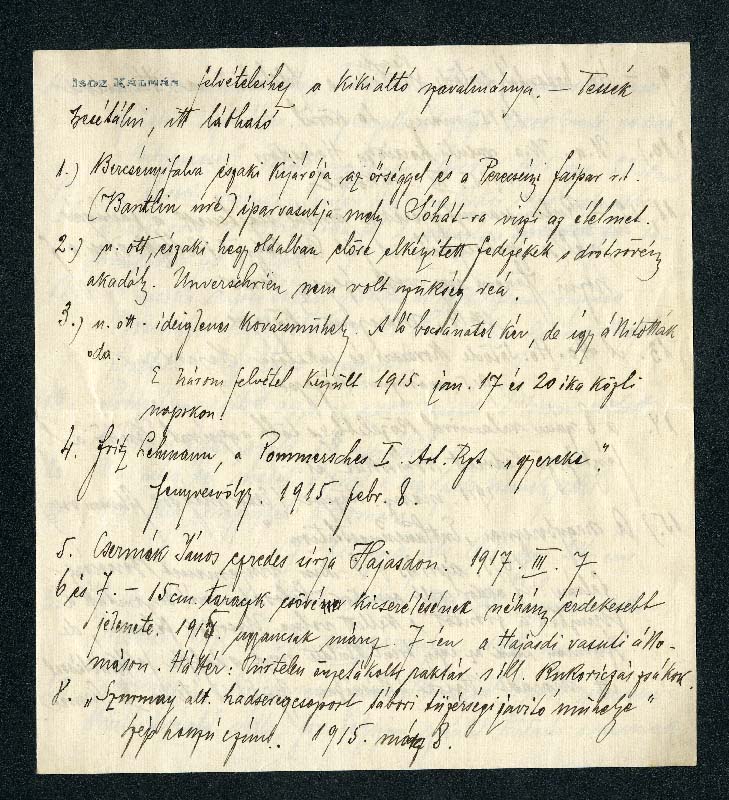 ISOZ KÁLMÁN felvételeihez a kikiáltó – Tessék
besétálni, itt látható
1.) Bercsényifalva északi kijárója az őrséggel és a faipar r.t.
(Bantlin féle) iparvasutja mely Sóhát-ra viszi az élelmet.
2.) u. ott, északi hegyoldalban előre elkészített fedezékek s drótsövény
akadály. nem volt szükség reá.
3.) u. ott. ideiglenes Kovácsműhely. A ló bocsánatot kér, de így állították
oda.
E három felvétel készült 1915 jan. 17 és 20ika közti
napokon.
4. Fritz Lehmann, a Pommersches I. Art. Rgt. "gyereke".
Fenyvesvölgy. 1915. febr. 8.
5. Csermák János ezredes sírja Hajasdon. 1917. III. 7
6 és 7. – 15cm. tarack csövének kicserélésének néhány érdekesebb
jelenete. 1915. ugyancsak márcz 7-én a Hajasdi vasuti állo-
máson. Háttér: raktár s ill. Kukoriczás zsákok.
8. "Szurmay alt. hadseregcsoport tábori tüzérségi javító műhelye"
szép hosszú czím.. 1915. márcz 8.